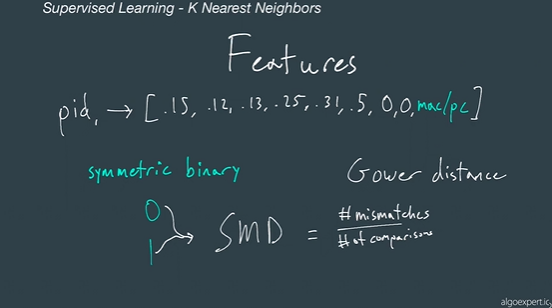 Supervised Learning - K Nearest Neighbors
Features
pid₁ → [.15, .12, .13, .25, .31, .5, 0,0,mac/pc]
symmetric binary
Gower distance
0
1
SMD = #mismatches
#of comparisons
algoexpert.io